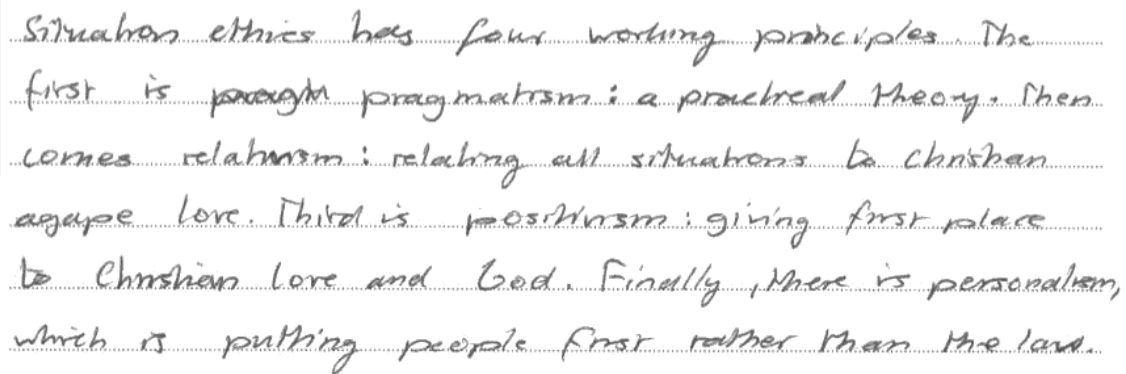 Situation ethics has four working principles. The
first is pragmatism: a practical theory. Then
comes relativism: relating all situations to Christian
agape love. Third is positivism: giving first place
to Christian love and God. Finally, there is personalism,
which is putting people first rather than the law.